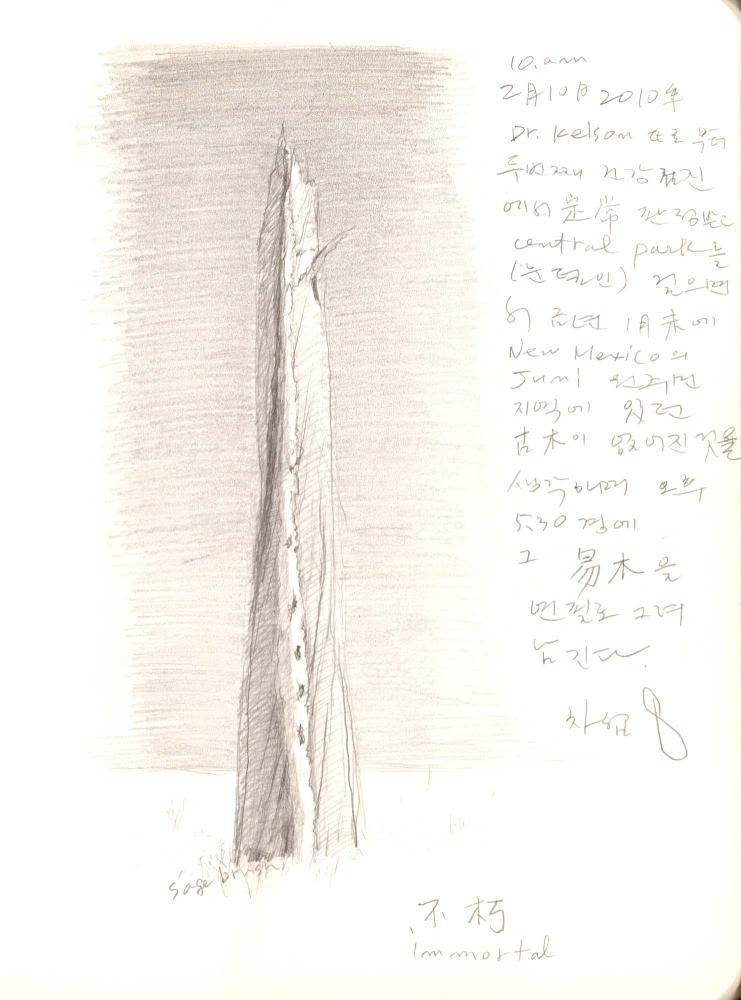 10. am
2月10日 2010年
Dr. Kelson 으로 부터
두번째 건강검진
에서 正常 판정받고
central park을
(눈덮인) 걸으면
서 금년 1月末에
New Mexico의
Juni 원주민
지역에 있던
古木이 없어진 것을
생각하며 오후
5:30 경에
그 易木을
연필로 그려
남긴다.
sage brush
不朽
immortal